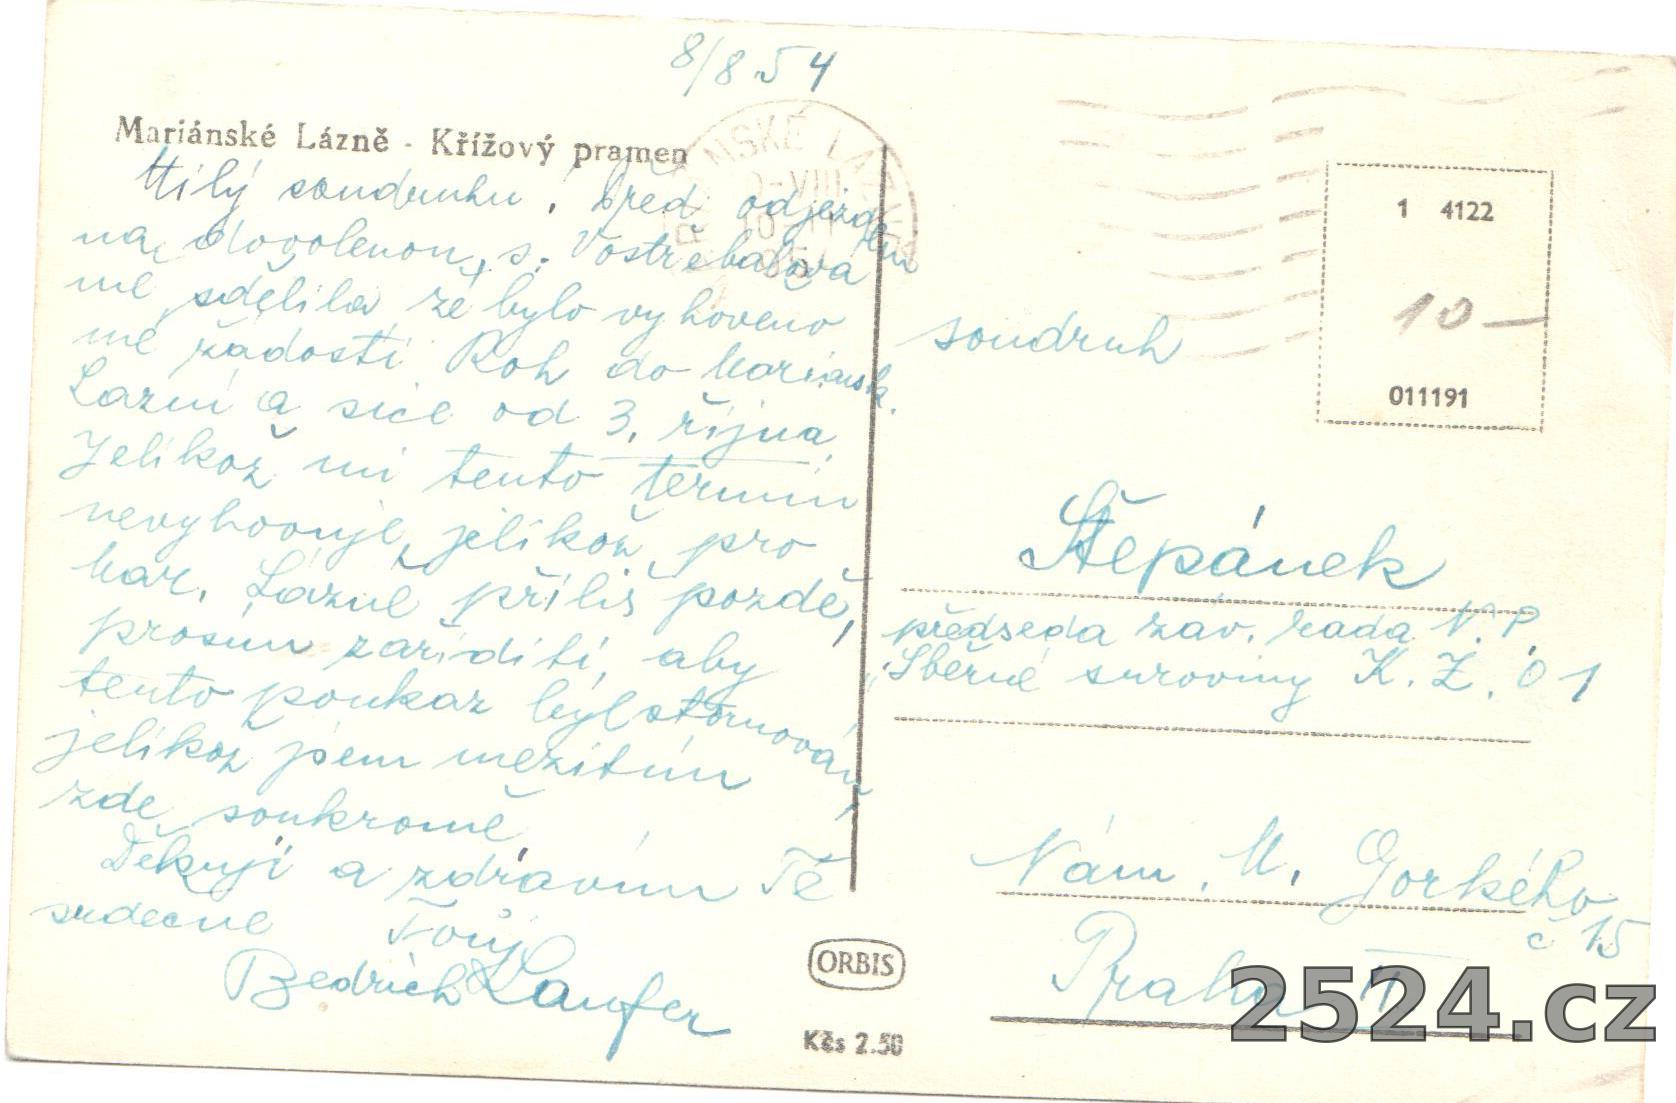 8/8 54
Mariánské Lázně - Křížový pramen
Milý soudruhu, Před odjezdem
na dovolenou, s. Vostřebalová
mě sdělila že bylo vyhoveno
mé žádosti Roh do Mariánsk.
Lázní a sice od 3. října.
Jelikož mi tento termín
nevyhovuje, jelikož pro
Mar. Lázně příliš pozdě,
prosím zaříditi, aby
tento poukaz byl stornován,
jelikož jsem mezitím
zde soukromě.
Děkuji a zdravím Tě
srdečně Tvůj
Bedrich Laufer
ORBIS
Kčs 2.50
1 4122
10 —
011191
soudruh
Štěpánek
předseda záv. rada N.P.
Sběrné suroviny K. Z. 01
Nám. M. Gorkého
č 15
Praha II
2524.cz